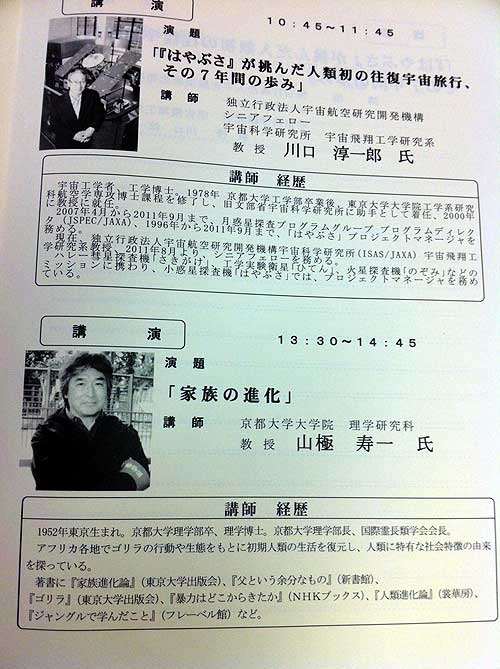 講　　演
10：45～11：45
演　題
「『はやぶさ』が挑んだ人類初の往復宇宙旅行、
その７年間の歩み」
講　師　独立行政法人宇宙航空研究開発機構
シニアフェロー
宇宙科学研究所　宇宙飛翔工学研究系
教　授　川口　淳一郎　氏
講師　経歴
宇宙工学者、工学博士。1978年 京都大学工学部卒業後、東京大学大学院工学系研究
科航空学専攻博士課程を修了し、旧文部省宇宙科学研究所に助手として着任、2000年
に教授に就任。
2007年4月から2011年9月まで、月惑星探査プログラムグループ プログラムディレク
タ（JSPEC/JAXA）、1996年から2011年9月まで、「はやぶさ」プロジェクトマネージャを
務める。
現在、独立行政法人宇宙航空研究開発機構宇宙科学研究所(ISAS/JAXA) 宇宙飛翔工
学研究系教授、2011年8月より、シニアフェローを務める。
ハレー彗星探査機「さきがけ」、工学実験衛星「ひてん」、火星探査機「のぞみ」などの
ミッションに携わり、小惑星探査機「はやぶさ」では、プロジェクトマネージャを務め
ている。
講　　演
13：30～14：45
演　題
「家族の進化」
講　師　京都大学大学院　理学研究科
教　授　山極　寿一　氏
講師　経歴
1952年東京生まれ。京都大学理学部卒、理学博士。京都大学理学部長、国際霊長類学会会長。
アフリカ各地でゴリラの行動や生態をもとに初期人類の生活を復元し、人類に特有な社会特徴の由来
を探っている。
著書に『家族進化論』（東京大学出版会）、『父という余分なもの』（新書館）、
『ゴリラ』（東京大学出版会）、『暴力はどこからきたか』（NHKブックス）、『人類進化論』（裳華房）、
『ジャングルで学んだこと』（フレーベル館）など。